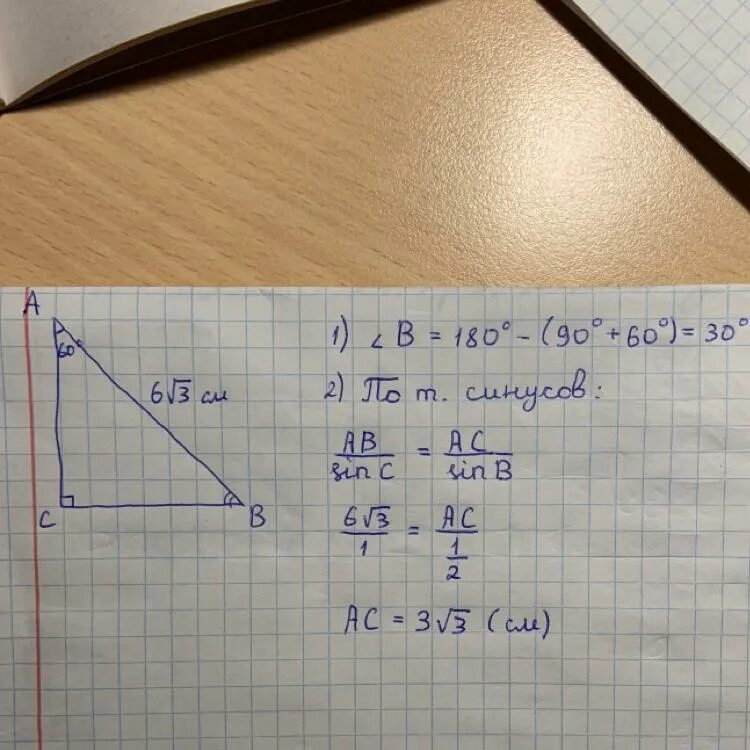 A
60°
6√3 см
C
B
1) ∠B = 180° - (90° + 60°) = 30°
2) По т. синусов:
AB/sin C = AC/sin B
6√3/1 = AC/(1/2)
AC = 3√3 (см)